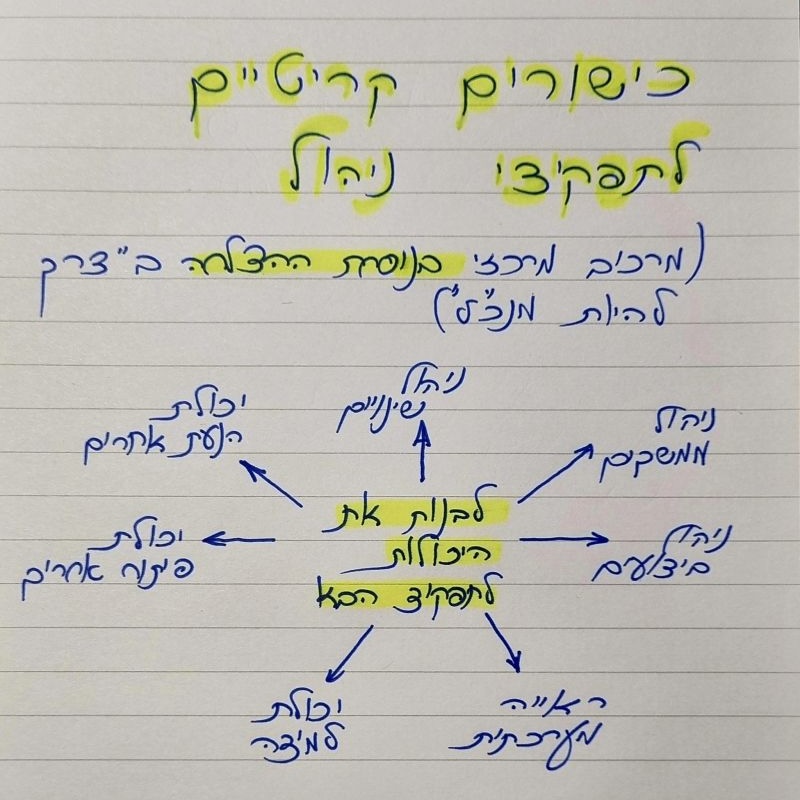 כישורים קריטיים
לתפקידי ניהול
(מרכיב מרכזי בנוסחת ההצלחה ב"דרך
להיות מנכ"ל")
ניהול
שינויים
ניהול
ממשקים
ניהול
ביצועים
ראייה
מערכתית
יכולת
למידה
יכולת
פיתוח אחרים
יכולת
הנעת אחרים
לבנות את
היכולות
לתפקיד הבא